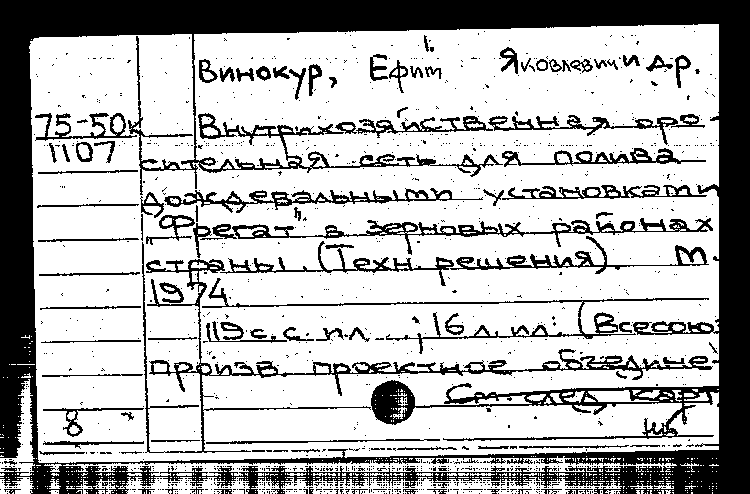 Винокур, Ефим Яковлевич и др.
75-50к Внутрихозяйственная оро-
1107 сительная сеть для полива
дождевальными установками
"Фрегат" в зерновых районах
страны. (Техн. решения). М.
1974.
119 с. с. пл ; 16 л. ил. (Всесоюз
произв. проектное объедине-
См. след. карт.
8